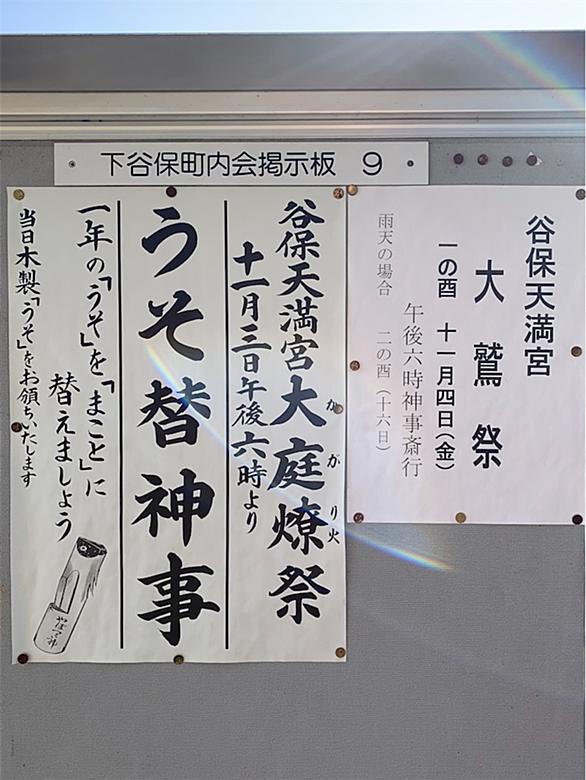 下谷保町内会掲示板 9
谷保天満宮
大鷲祭
一の酉 十一月四日(金)
午後六時神事斎行
雨天の場合 二の酉(十六日)
谷保天満宮大庭燎祭
かがり火
十一月三日午後六時より
うそ替神事
一年の「うそ」を「まこと」に
替えましょう
当日木製「うそ」をお頒ちいたします